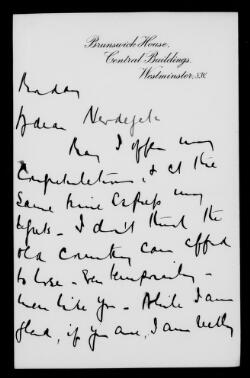 Brunswick House,
Central Buildings,
Westminster, S.W.
My dear Newdegate
May I offer my
Congratulations, & at the
same time express my
regrets. I don't think the
old Country can afford
to lose - even temporarily -
men like you. While I am
glad, if you are, I am really